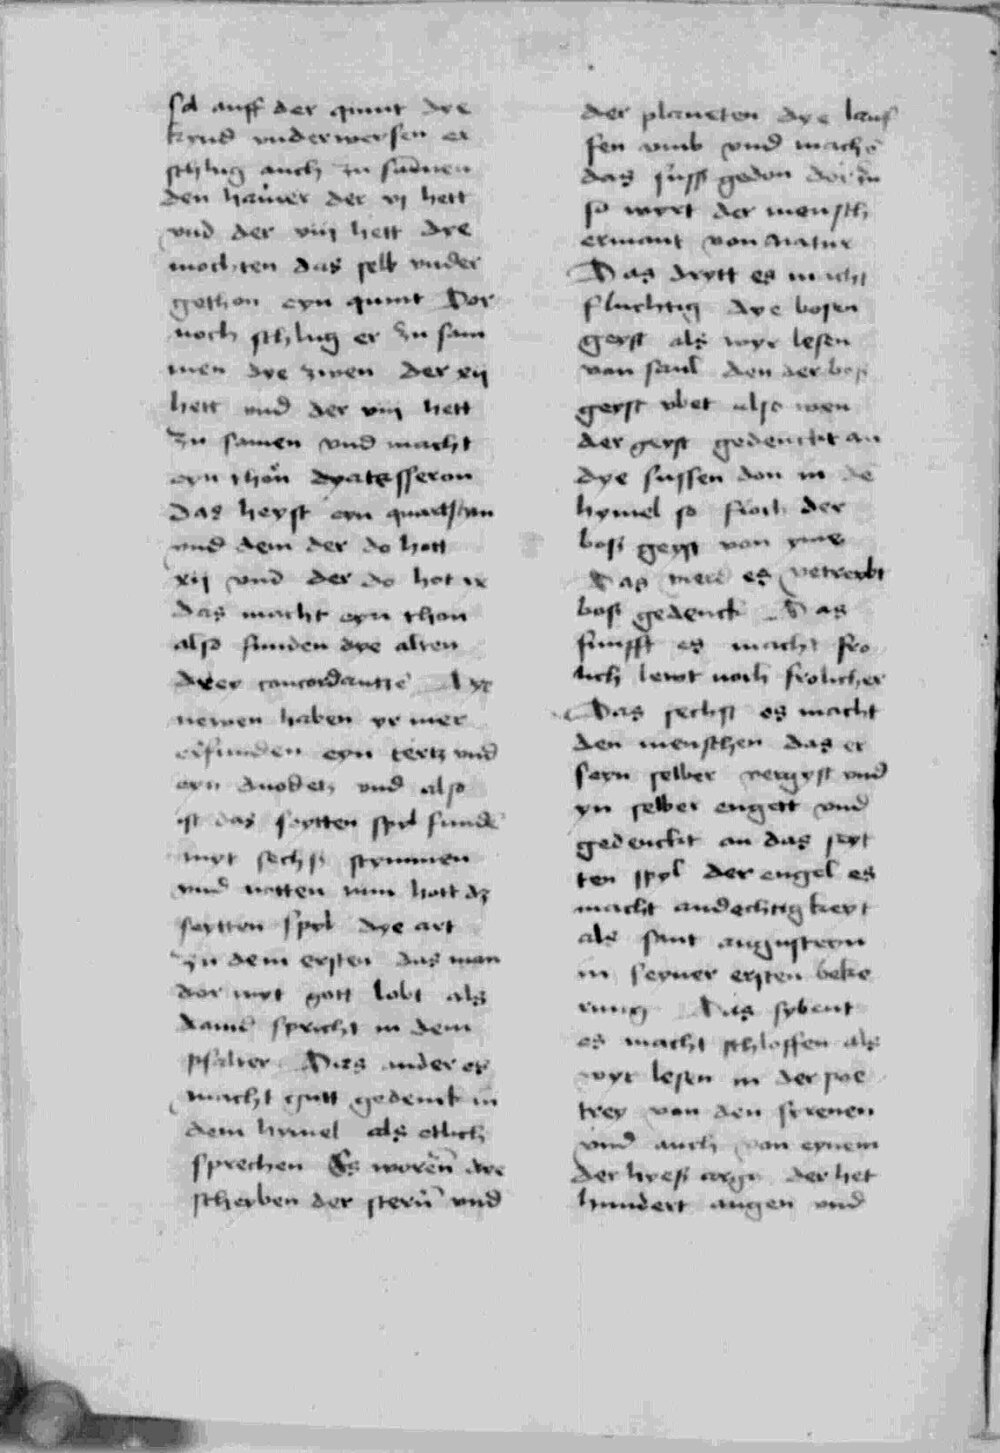 sol auff der quint dye
kynd vnderwersen er
schlug auch zu samen
den hamer der vj hett
vnd der viij hett dye
mochten das selb vnder
gethon eyn quint Dor
noch schlug er zu sam
men dye zwen der xij
hett vnd der viij hett
zu samen vnd macht
eyn thon dyatesseron
das heyst eyn quart
vnd dem der do hott
xij vnd der do hot ix
das macht eyn thon
also funden dye alten
drey concordantze
newen haben yr mer
erfunden eyn tertz vnd
eyn duodetz vnd also
ist das seytten spyl funde
myt sechs stymmen
vnd notten nun hott dz
seytten spyl dye art
zu dem ersten das man
dor myt gott lobt als
dauid spricht in dem
psalter Das ander es
macht gutt gedenck in
dem hymel als etlich
sprechen Es woren dye
scheyben der stern vnd
der planeten dye lauf
fen vmb vnd mache
das suss gedon dor zu
so wyrt der mensch
ermant von natur
Das drytt es macht
fluchtig dye bosen
geyst als wyr lesen
von saul den der boss
geyst vbet also wen
der geyst gedenckt an
dye sussen don in de
hymel so floch der
boss geyst von yme
Das es vetreybt
boss gedenck Das
funfft es macht fro
lich lewt noch frolicher
Das sechst es macht
den menschen das er
seyn selber vergyst vnd
yn selber engett vnd
gedenckt an das seyt
ten spyl der engel es
macht andechtigkeyt
als sant augusteyn
in seyner ersten beke
rung Das sybent
es macht schloffen als
wyr lesen in der poe
trey von den syrenen
vnd auch von eynem
der hyess argo der het
hundert augen vnd